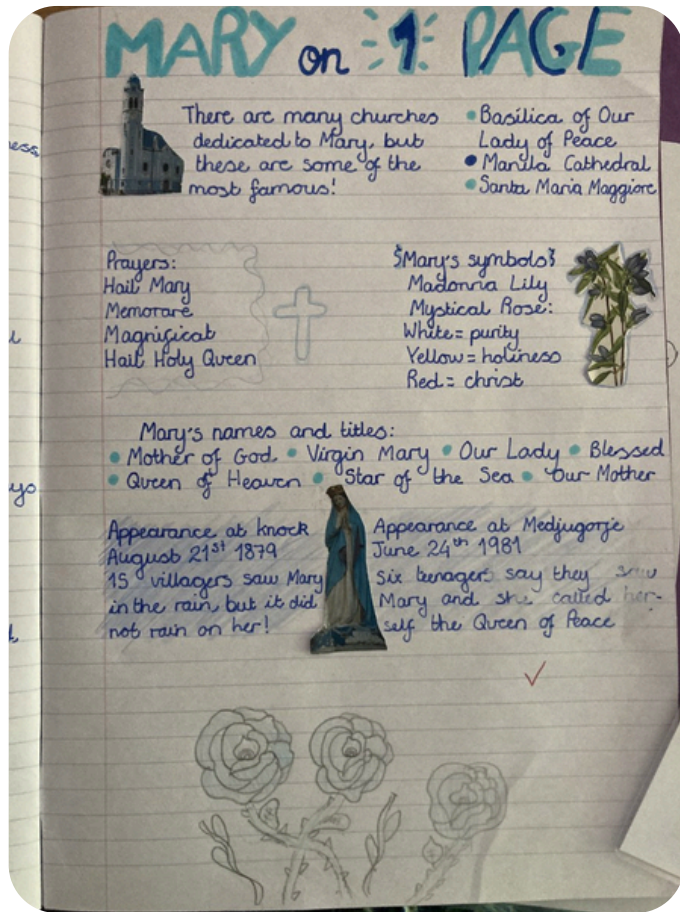 MARY on 1 PAGE
There are many churches
dedicated to Mary, but
these are some of the
most famous!
Basilica of Our
Lady of Peace
Manila Cathedral
Santa Maria Maggiore
Prayers:
Hail Mary
Memorare
Magnificat
Hail Holy Queen
Mary's symbols
Madonna Lily
Mystical Rose:
White = purity
Yellow = holiness
Red = christ
Mary's names and titles:
• Mother of God • Virgin Mary • Our Lady • Blessed
• Queen of Heaven • Star of the Sea • Our Mother
Appearance at knock
August 21st 1879
15 villagers saw Mary
in the rain, but it did
not rain on her!
Appearance at Medjugorje
June 24th 1981
Six teenagers say they saw
Mary and she called her-
self the Queen of Peace